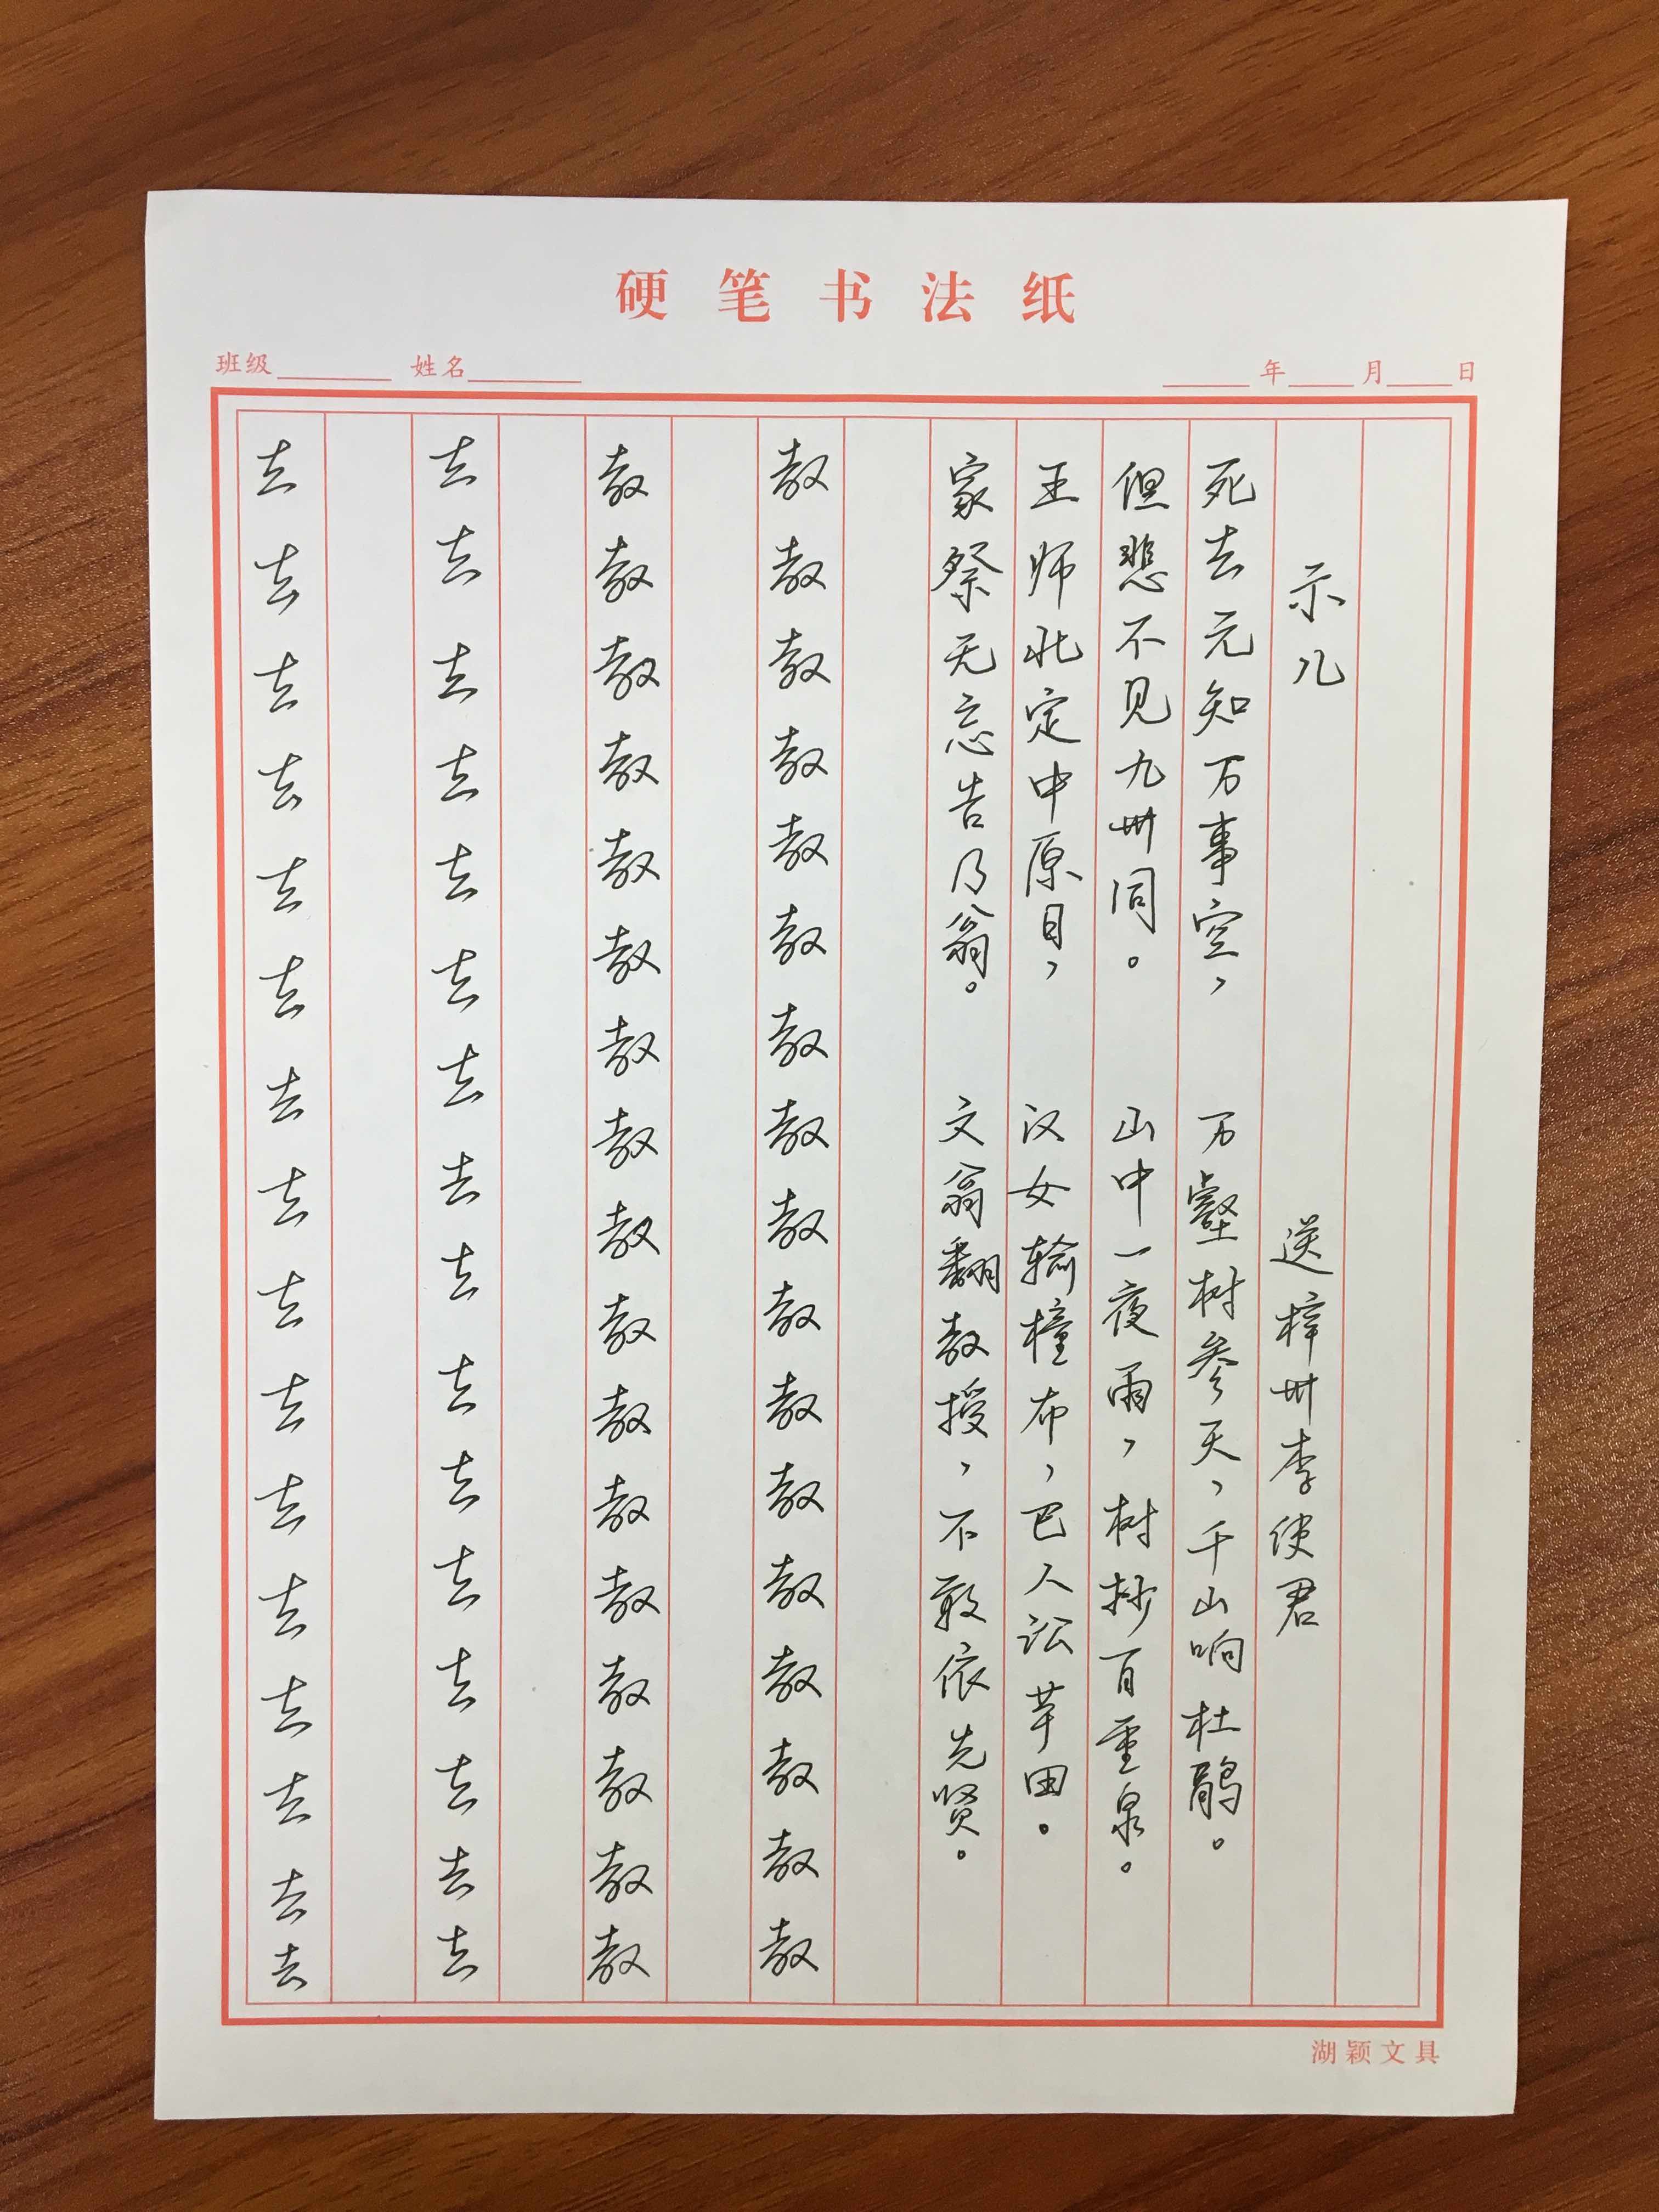 硬笔书法纸
班级 姓名 年 月 日
示儿 送梓州李使君
死去元知万事空， 万壑树参天，千山响杜鹃。
但悲不见九州同。 山中一夜雨，树杪百重泉。
王师北定中原日， 汉女输橦布，巴人讼芋田。
家祭无忘告乃翁。 文翁翻教授，不敢依先贤。
教教教教教教教教教教教教教教教教教
教教教教教教教教教教教教教教教教教
去去去去去去去去去去去去去去去去
去去去去去去去去去去去去去去去去
湖颖文具